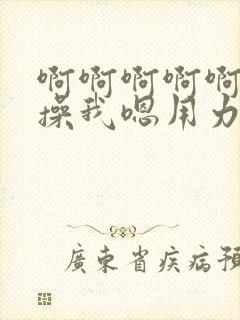 啊啊啊啊啊
操我嗯用力
廣東省疾病預